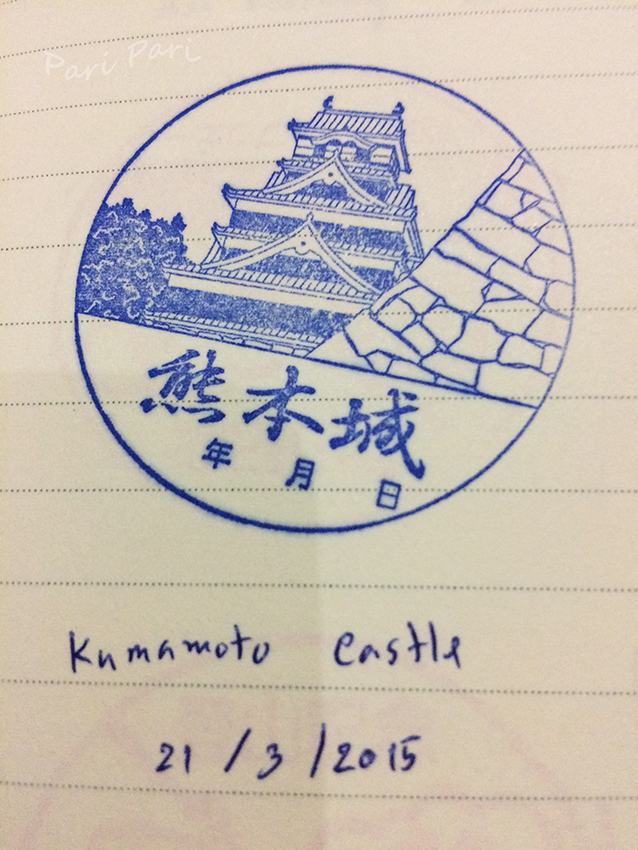 Pari Pari
熊本城
年 月 日
Kumamoto Castle
21 / 3 / 2015